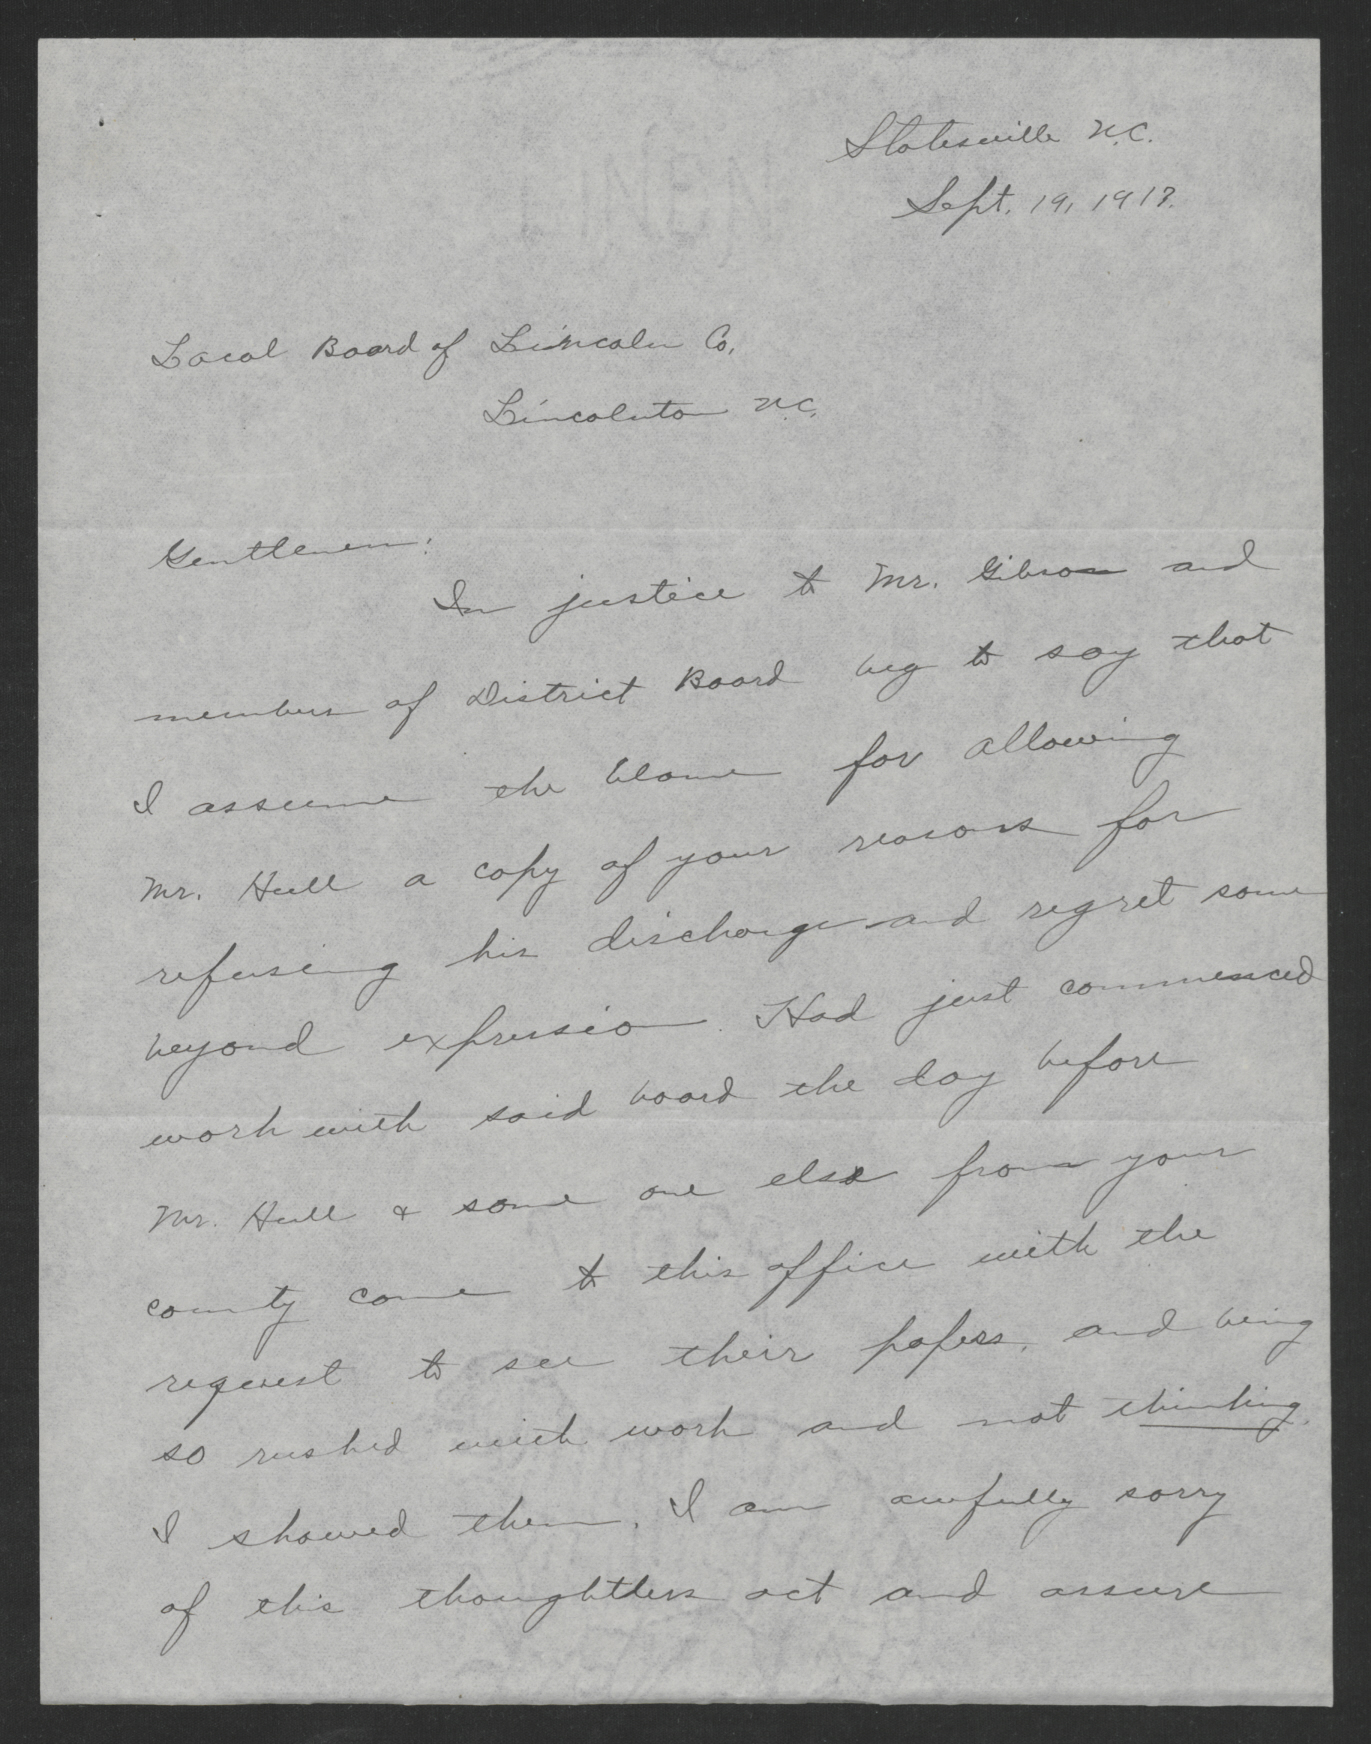 Statesville N.C.
Sept. 19, 1917.
Local Board of Lincoln Co.
Lincolnton N.C.
Gentlemen:
In justice to Mr. Gibson and
members of District Board beg to say that
I assume the blame for allowing
Mr. Hull a copy of your reasons for
refusing his discharge and regret same
beyond expression. Had just commenced
work with said board the day before
Mr. Hull & some one else from your
county came to this office with the
request to see their papers, and being
so rushed with work and not thinking
I showed them. I am awfully sorry
of this thoughtless act and assure